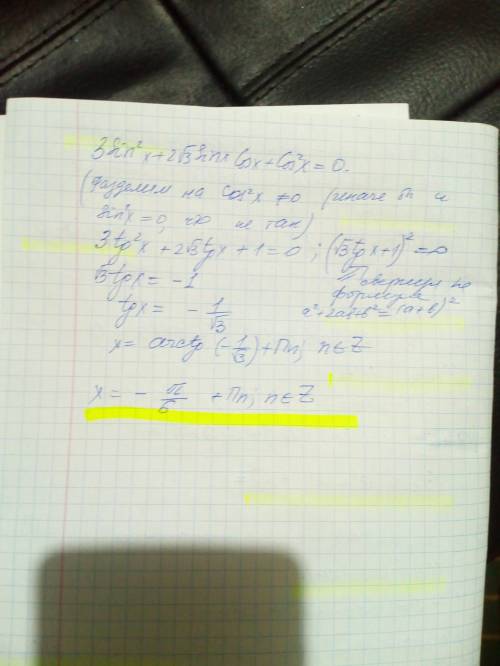 3Sin²x+2√3Sinx Cosx+Cos²x=0.
(разделим на Cos²x ≠0 (иначе бы и
Sin²x=0, что не так)
3tg²x+2√3tgx+1=0 ; (√3tgx+1)²=0
√3tgx = -1
свернули по
формуле
tgx = - 1/√3
a²+2ab+b²=(a+b)²
x= arctg (-1/√3)+πn; n∈Z
x= - π/6 +πn; n∈Z